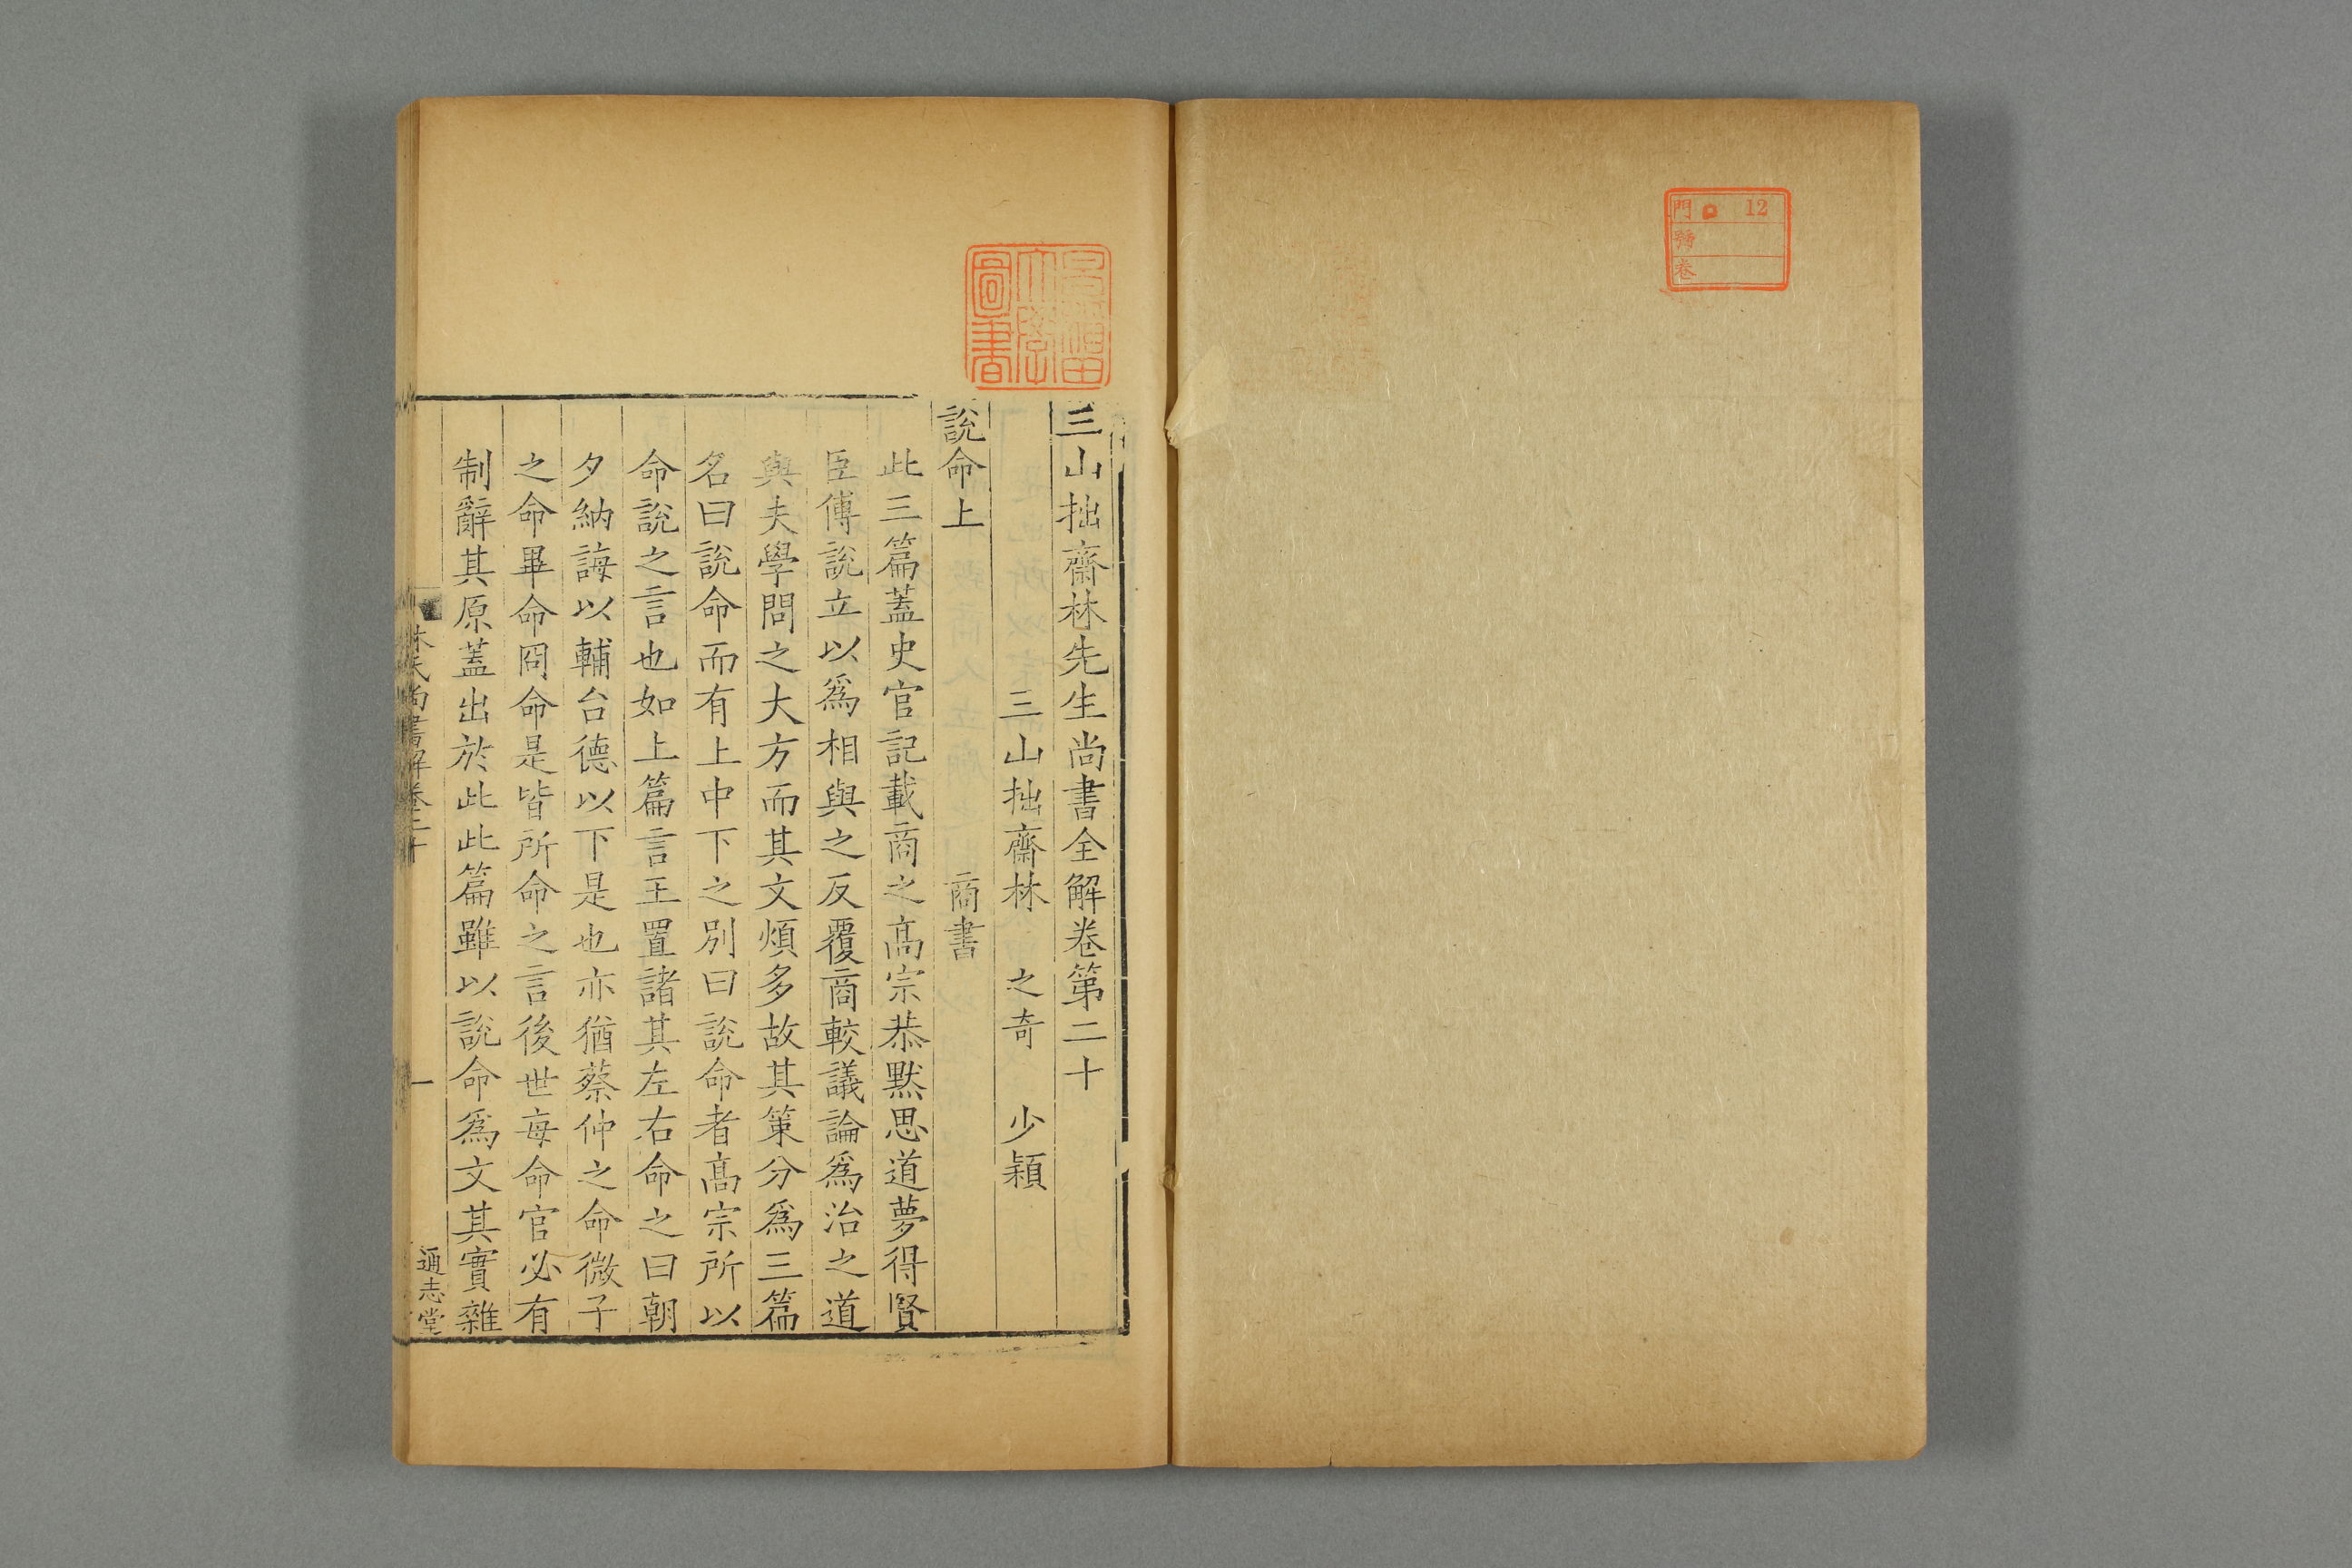 門 12
號
卷
早稲田
大學
圖書
三山拙齋林先生尚書全解卷第二十
三山拙齋林 之奇 少穎
說命上 商書
此三篇蓋史官記載商之高宗恭黙思道夢得賢
臣傅說立以爲相與之反覆商較議論爲治之道
與夫學問之大方而其文煩多故其策分爲三篇
名曰說命而有上中下之別曰說命者高宗所以
命說之言也如上篇言王置諸其左右命之曰朝
夕納誨以輔台德以下是也亦猶蔡仲之命微子
之命畢命冏命是皆所命之言後世每命官必有
制辭其原蓋出於此此篇雖以說命爲文其實雜
林氏尚書解卷二十 一 通志堂